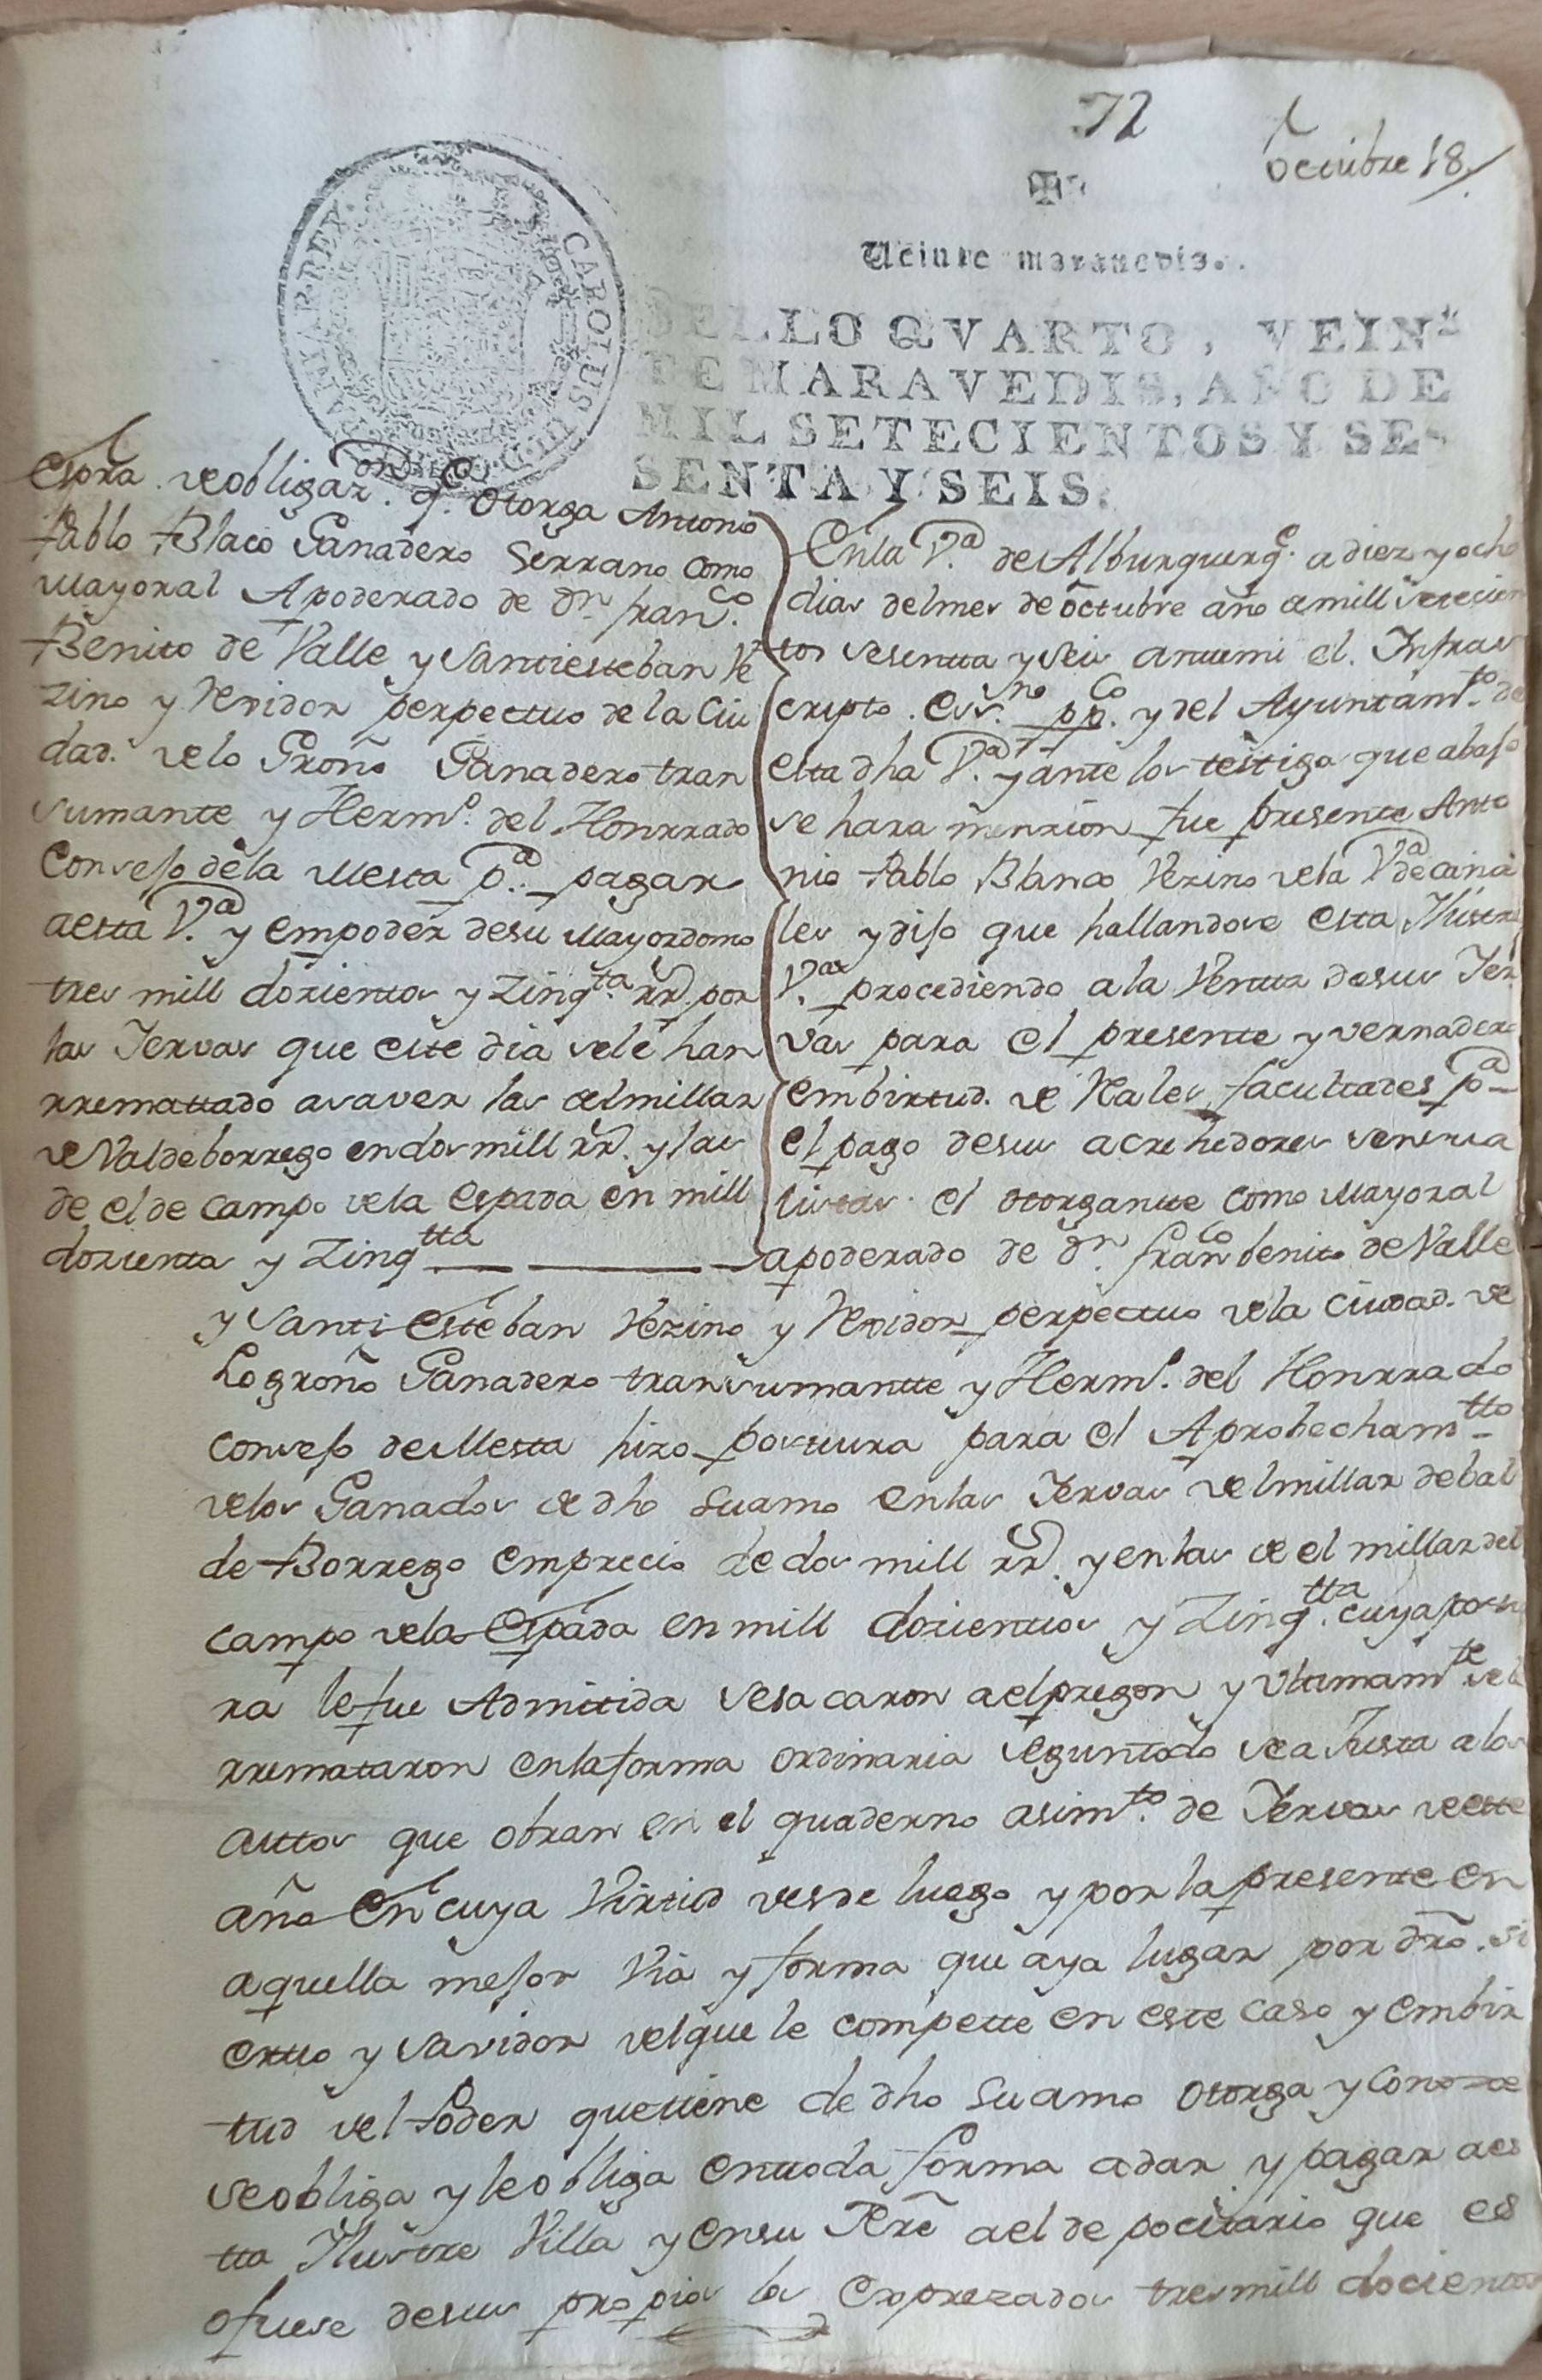 72
Octubre 18
Veinte maravedis.
SELLO QVARTO, VEIN-
TE MARAVEDIS, AÑO DE
MIL SETECIENTOS Y SE-
SENTA Y SEIS.
CAROLUS III D G HISPANIAR REX
Esxra. de obligaz.on q.e otorga Antonio
Pablo Blāco Ganadero Serrano como
Mayoral Apoderado de Dn. Fran.co
Benito de Valle y Santiesteban Ve
zino y Rexidor perpectuo de la Ciu
dad. de lo Groño Ganadero tran
sumante y Herm.o del Honrrado
Consejo de la Mesta p.a pagar
aesta V.a y empoder desu Mayordomo
tres mill dozientos y zinq.ta rr.s por
las Jervas que este dia sele han
rremattado asaver las del millar
de Valdeborrego endos mill rr.s y las
de el de Campo de la Espada en mill
dozientos y zinq.tta
En la V.a de Alburquerq.e a diez y ocho
dias del mes de Octubre año de mill setecien
tos sesentta y seis antemi el Infras
cripto Ess.no pp.co y del Ayuntam.to de
esta dha V.a y ante los testigos que abajo
se hara menzion fue presente Anto
nio Pablo Blanco Vezino dela V.a de Cania
les y dijo que hallandose esta Illustre
V.a procediendo ala Ventta desus Jer
vas para el presente ynvernadero
embirtud. de Rales facultades p.a
el pago desus acrehedores zensua
listas el otorgantte como Mayoral
apoderado de Dn. Fran.co benito de Valle
y Santi Esteban Vezino y Rexidor perpectuo dela Ciudad. de
Logroño Ganadero transumantte y Herm.o del Honrrado
Consejo de Mesta hizo postura para el Aprobecham.tto
delos Ganados de dho su amo enlas Jervas del millar de bal
de Borrego emprecio de dos mill rr.s y enlas de el millar del
Campo dela Espada en mill dozienttos y zinq.tta cuya postu
ra le fue Admitida se sacaron ael pregon y Ultimam.te se la
rremataron enla forma ordinaria segun todo se ajusta a los
auttos que obran en el quaderno asim.to de Jervas deeste
año En cuya Virtud desde luego y por la presente en
aquella mejor Via y forma que aya lugar por dro. Si
erttto y savidor del que le compette en este caso y embir
tud del Poder que tiene de dho su amo otorga y Conoze
se obliga y le obliga entoda forma adar y pagar aes
tta Ilustre Villa y en su Rre ael depocitario que es
o fuese desus propios los Exprezados tres mill docientos